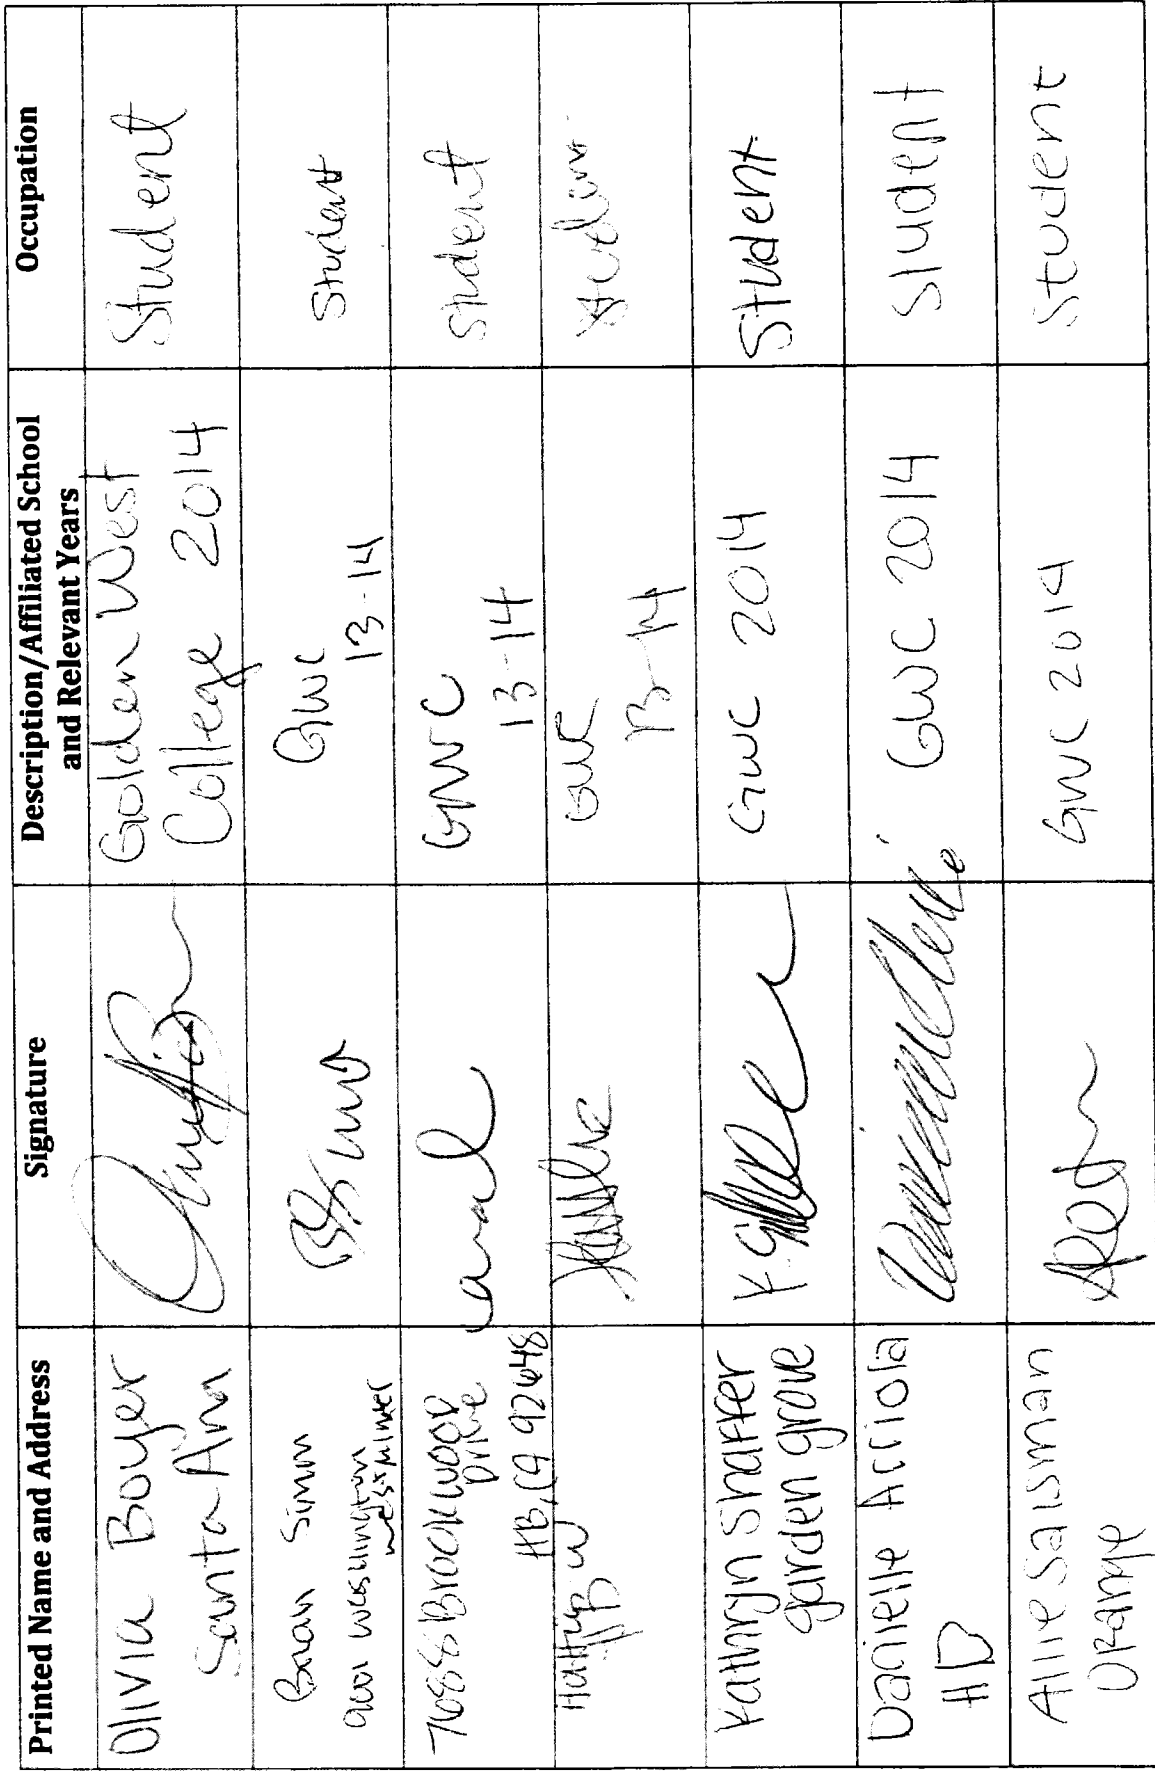 Printed Name and Address
Signature
Description/Affiliated School
and Relevant Years
Occupation
Olivia Boyer
Santa Ana
Golden West
College 2014
Student
Simm
Washington
Westminster
GWC
13-14
Student
7688 Brookwood
Drive
HB, CA 92648
GWC
13-14
Student
GWC
13-14
Student
Kathryn Shaffer
garden grove
GWC 2014
Student
Danielle Arriola
HB
GWC 2014
Student
Allie Salsman
Orange
GWC 2014
Student